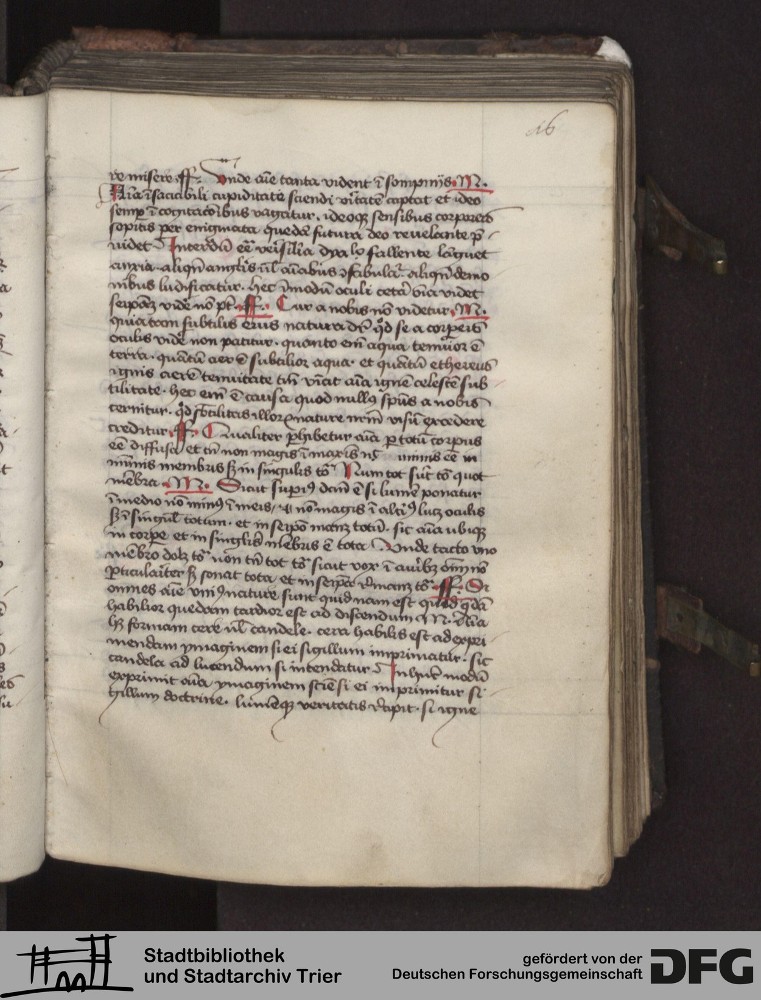 16
re misere · ff · Unde aīe tanta vident ī sompnijs · M ·
Aīa īsaciabili cupiditate sciendi v̄itatē captat et ideo
semp̄ ī cogitacōibus vagatur · ideoqꝫ sensibus corporeis
sopitis per enigmata quedā futura deo revelante p̄
uidet Interdū eē
anxia aliqn̄ angl̓is ul̓ aīabus ꝯfabulat̄ · aliqn̄ demo
nibus ludificatur · hec īmodū oculi
videt
serpōā vidē nō pt̄ · ff · Cur a nobis nō videtur · M ·
Quia tam subtilis eius natura qd̓ se a corpeis
oculis vidē non patitur · quanto em̄ aqua tenuior ē
terra · quātū aer ē subtilior aqua · et quātū ethereus
ignis aerē tenuitate tm̄ vīcit aīa ignē celestē sub
tilitate · hec em̄ ē causa quod nullꝰ sp̄us a nobis
cernitur · qd̓ sbtilitas illoꝝ nature nrm̄ visū excedere
creditur · ff · Qualiter ꝑhibetur aīa ꝑ totū corpus
eē diffusa et tn̄ non magis ī maxīs minus eē in
mīnis membris sꝫ in singulis tō Num tot sūt tō quot
mēbra · M · Sicut supiꝰ dcm̄ ē si lumē ponatur
ī medio nō minꝰ ī meis nō magis ī luꝫ oculis
sꝫ ī singul̓ totum · et in manꝫ totū · sic aīa ubiqꝫ
in corpe et in singlis mēbris ē tota Unde tacto uno
mēbro dolꝫ tō non tn̄ tot tō sicut vox ī auibꝫ
ꝑticulariter sꝫ sonat tota et in manꝫ tō · ff · Si
omnes aīe uniꝰ nature sunt quidnam est quod q̄dā
habilior quedam tardior est ad discendum · M · Aīa
hꝫ formam cere ul̓ candele · cera habilis est ad expri
mendam ymaginem si ei sigillum imprimatur · sic
candela ad lucendum si intendatur In modū
exprimit aīa ymaginem sciē si ei imprimitur si
gillum doctrine · lumēqꝫ veritatis rapit · si igne
Stadtbibliothek
und Stadtarchiv Trier
gefördert von der
Deutschen Forschungsgemeinschaft
DFG